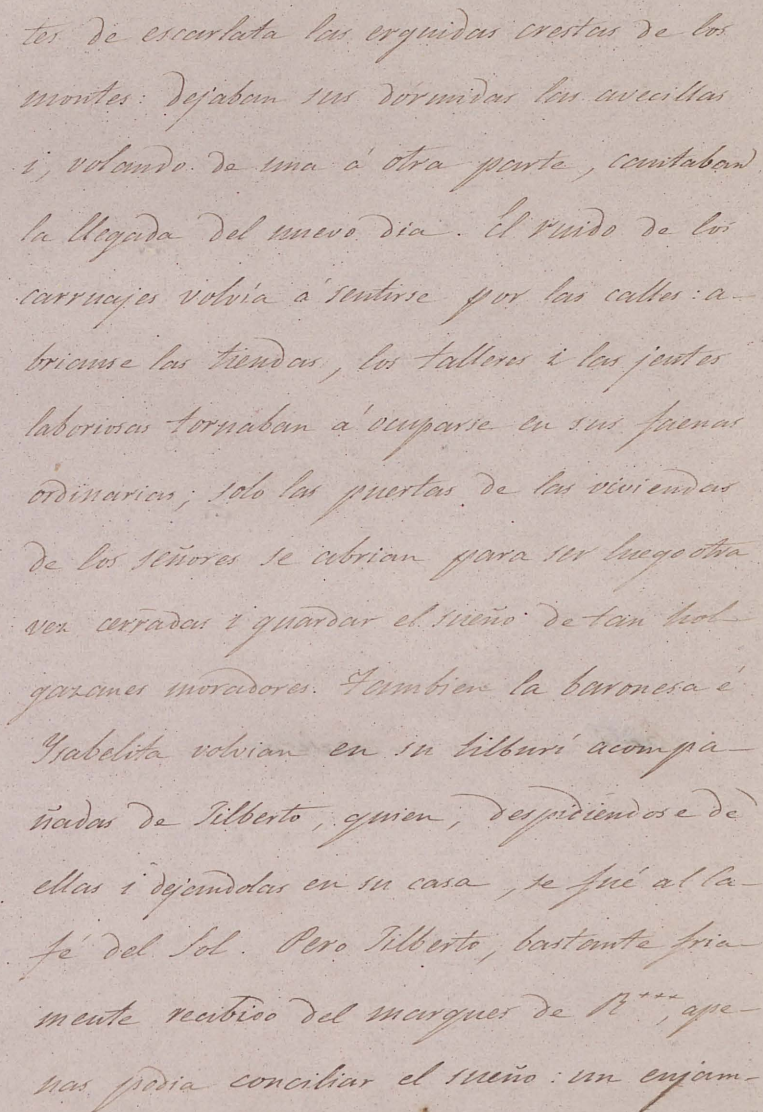 tes de escarlata las erguidas crestas de los
montes: dejaban sus dormidas las avecillas
i, volando de una á otra parte, cantaban
la llegada del nuevo dia. El ruido de los
carruajes volvia á sentirse por las calles: a-
brianse las tiendas, los talleres i las jentes
laboriosas tornaban á ocuparse en sus faenas
ordinarias; solo las puertas de las viviendas
de los señores se abrian para ser luego otra
vez cerradas i guardar el sueño de tan hol-
gazanes moradores. Tambien la baronesa é
Ysabelita volvian en su tilburí acompa-
ñadas de Jilberto, quien, despidiendose de
ellas i dejandolas en su casa, se fué al Ca-
fé del Sol. Pero Jilberto, bastante fria-
mente recibido del marques de R***, ape-
nas podia conciliar el sueño: un enjam-